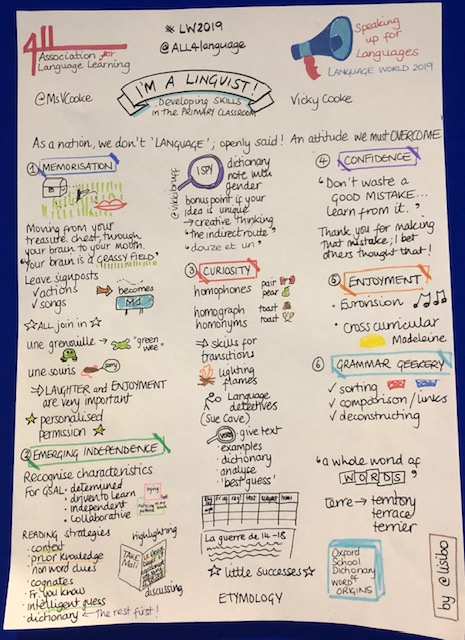 4all
Association for
Language Learning
# LW2019
@ALL4language
Speaking
up for
Languages
LANGUAGE WORLD 2019
@MsVCooke
I'M A LINGUIST!
Developing SKILLS
in the PRIMARY CLASSROOM
Vicky Cooke
As a nation, we don't 'LANGUAGE'; openly said! An attitude we must OVERCOME
① MEMORISATION
Moving from your
treasure chest, through
your brain to your mouth.
"Your brain is a GRASSY FIELD"
Leave signposts
✓ actions
✓ songs
becomes
Md
☆ ALL join in ☆
une grenouille → "green
wee"
une souris
⇒ LAUGHTER and ENJOYMENT
are very important
☆ personalised
permission ☆
② EMERGING INDEPENDENCE
Recognise characteristics
For GSAL • determined
• driven to learn
• independent
• collaborative
trying
READING strategies
• context
• prior knowledge
• non word clues
• cognates
• Fr. you know
• intelligent guess
• dictionary ← The rest first!
highlighting
TAKE
Mali
discussing
@vikkibruff
I SPY
dictionary
note with
gender
bonus point if your
idea is unique
→ creative thinking
"the indirect route"
"douze et un"
③ CURIOSITY
homophones
pair
pear
homograph
homonyms
toast
toast
⇒ skills for
transitions
lighting
flames
Language
detectives
(Sue Cave)
VERBS
give text
• examples
• dictionary
• analyse
• 'best guess'
La guerre de 14-18
☆ little successes ☆
ETYMOLOGY
④ CONFIDENCE
"Don't waste a
GOOD MISTAKE...
Learn from it.."
Thank you for making
that mistake; I bet
others thought that!
⑤ ENJOYMENT
• Eurovision
• Cross curricular
Madeleine
⑥ GRAMMAR GEEKERY
✓ sorting
✓ comparison/links
✓ deconstructing
"a whole world of
WORDS"
Terre → territory
terrace
terrier
Oxford
School
Dictionary
of
WORD
ORIGINS
by @lisibo